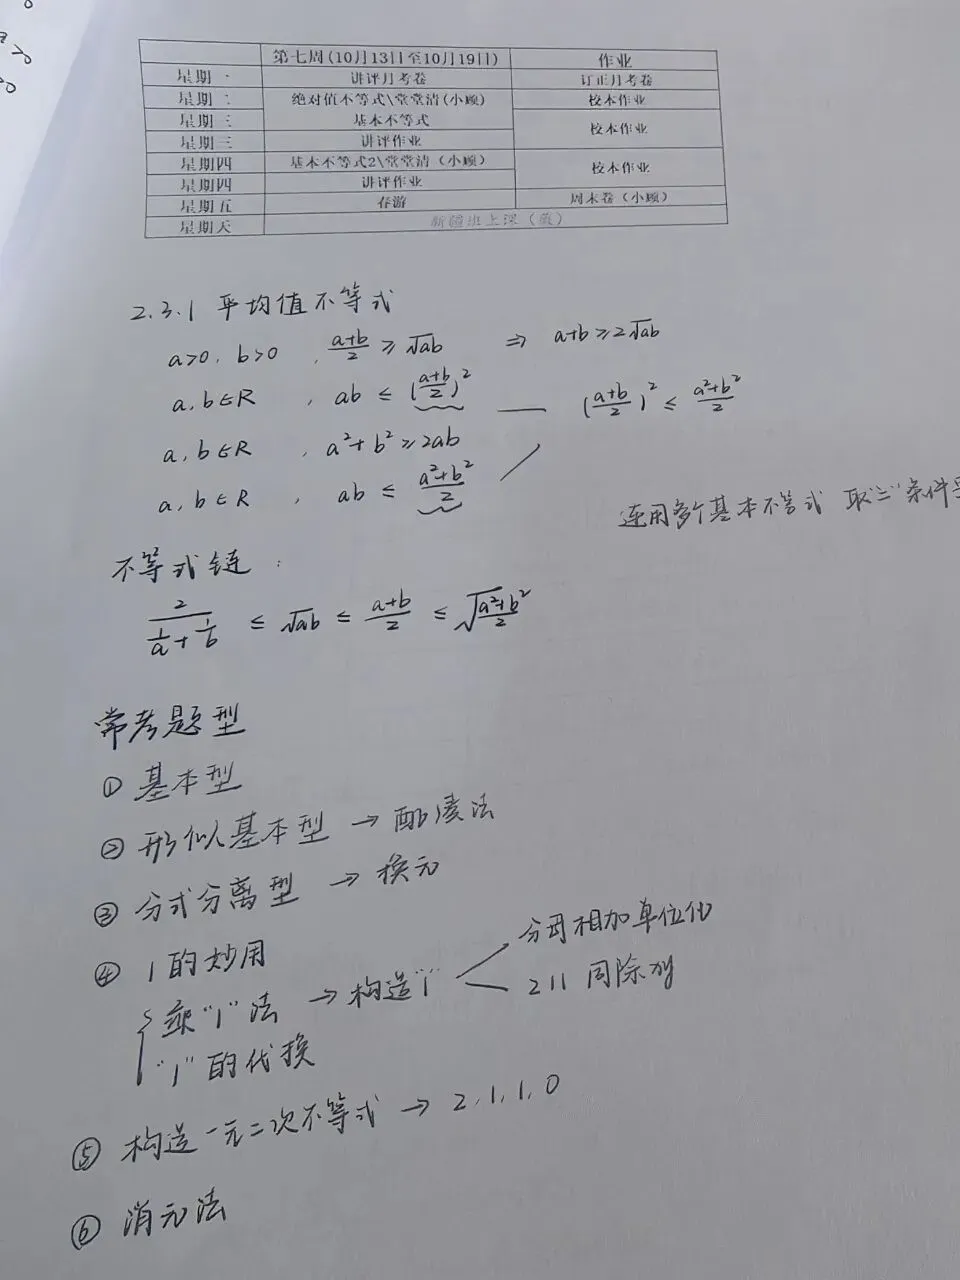 第七周(10月13日至10月19日) 作业
星期一 讲评月考卷 订正月考卷
星期二 绝对值不等式\堂堂清(小顾) 校本作业
星期三 基本不等式 校本作业
星期三 讲评作业
星期四 基本不等式2\堂堂清(小顾) 校本作业
星期四 讲评作业
星期五 春游 周末卷(小顾)
星期天 新疆班上课
2.3.1 平均值不等式
a>0, b>0, (a+b)/2 ≥ √ab ⇒ a+b ≥ 2√ab
a,b∈R, ab ≤ ((a+b)/2)² —— ((a+b)/2)² ≤ (a²+b²)/2
a,b∈R, a²+b² ≥ 2ab
a,b∈R, ab ≤ (a²+b²)/2
连用多个基本不等式 取"="条件
不等式链:
2/(1/a+1/b) ≤ √ab ≤ (a+b)/2 ≤ √((a²+b²)/2)
常考题型
① 基本型
② 形似基本型 → 配凑法
③ 分式分离型 → 换元
④ 1的妙用
乘"1"法 → 构造"1" 分母相加单位化
211 同除型
"1"的代换
⑤ 构造一元二次不等式 → 2,1,1,0
⑥ 消元法